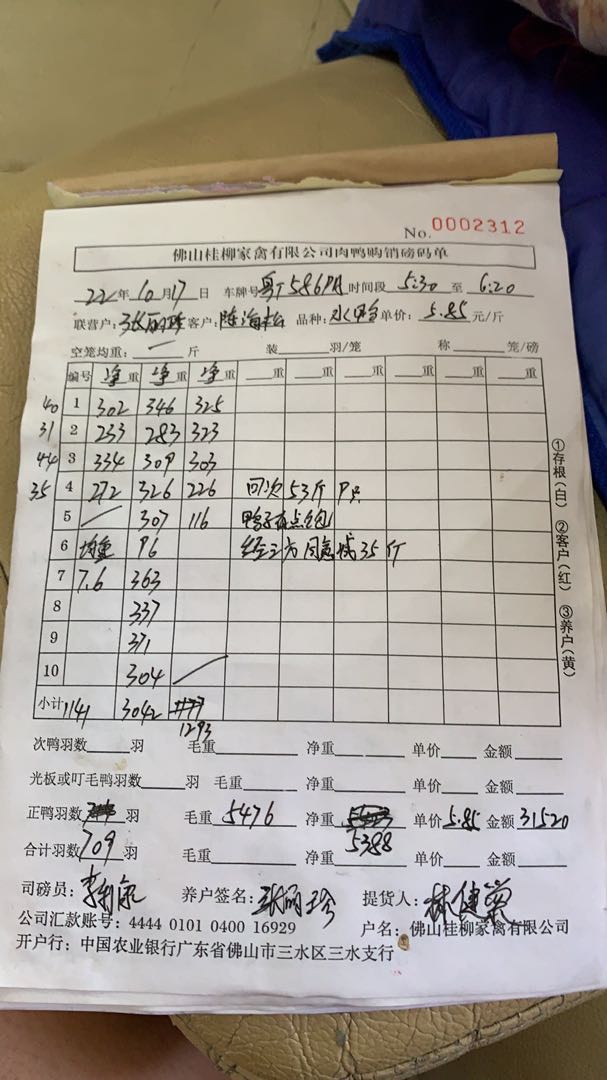 No. 0002312
佛山桂柳家禽有限公司肉鸭购销磅码单
22年10月17日 车牌号粤 586 时间段 5:30 至 6:20
联营户:张丽珍 客户:陈海 品种:水鸭 单价:5.85元/斤
空笼均重:一斤 装 羽/笼 称 笼/磅
编号 净重 净重 净重 重 重 重 重 重
40 1 302 346 325
31 2 233 283 323
44 3 334 309 303
35 4 272 326 226 回次53斤 P只
5 / 307 116 鸭子有点包
6 均重 96 经三方同意减35斤
7 7.6 363
8 337
9 371
10 304
小计 1141 3042 1293
次鸭羽数 羽 毛重 净重 单价 金额
光板或叮毛鸭羽数 羽 毛重 净重 单价 金额
正鸭羽数 羽 毛重 5476 净重 单价 5.85 金额 31520
合计羽数 709 羽 毛重 净重 5388 单价 金额
司磅员: 养户签名:张丽珍 提货人:林健
公司汇款账号:4444 0101 0400 16929 户名:佛山桂柳家禽有限公司
开户行:中国农业银行广东省佛山市三水区三水支行
①存根(白) ②客户(红) ③养户(黄)